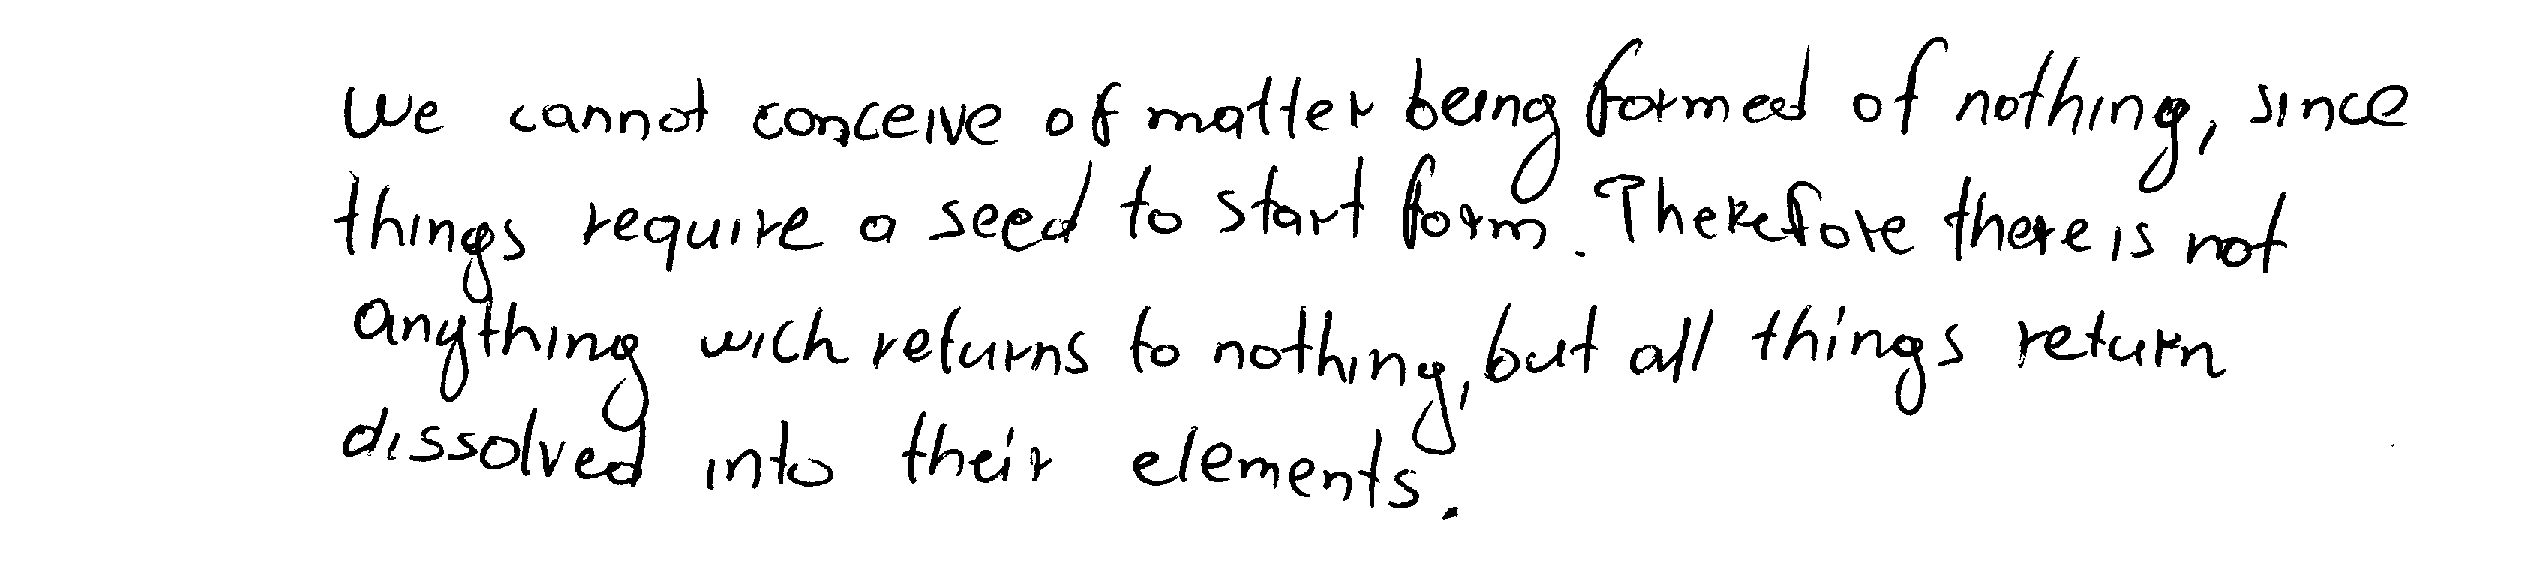 We cannot conceive of matter being formed of nothing, since
things require a seed to start form. Therefore there is not
anything wich returns to nothing, but all things return
dissolved into their elements.